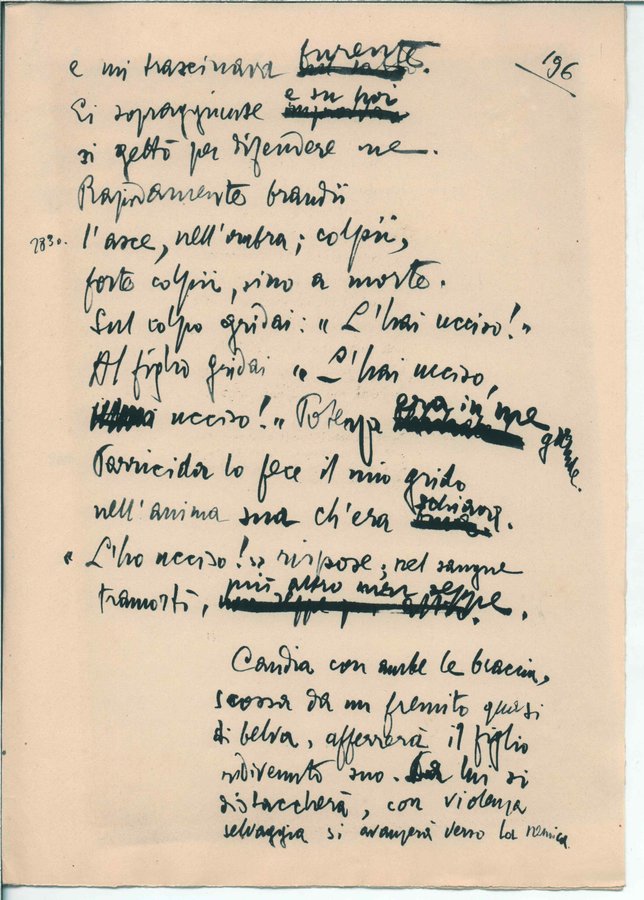 196
e mi trascinava furente.
Ei sopraggiunse e su noi
si gettò per difendere me.
Rapidamente brandii
2830. l'asce, nell'ombra; colpii,
forte colpii, sino a morte.
Sul colpo gridai: "L'hai ucciso!"
Al figlio gridai "L'hai ucciso,
ucciso!" Potenza era in me grande.
Parricida lo fece il mio grido
nell'anima sua ch'era schiava.
"L'ho ucciso!" rispose; nel sangue
tramortì, più altro non seppe.
Candia con ambe le braccia,
scossa da un fremito quasi
di belva, afferrerà il figlio
ridivenuto suo. Da lui si
distaccherà, con violenza
selvaggia si avanzerà verso la nemica.